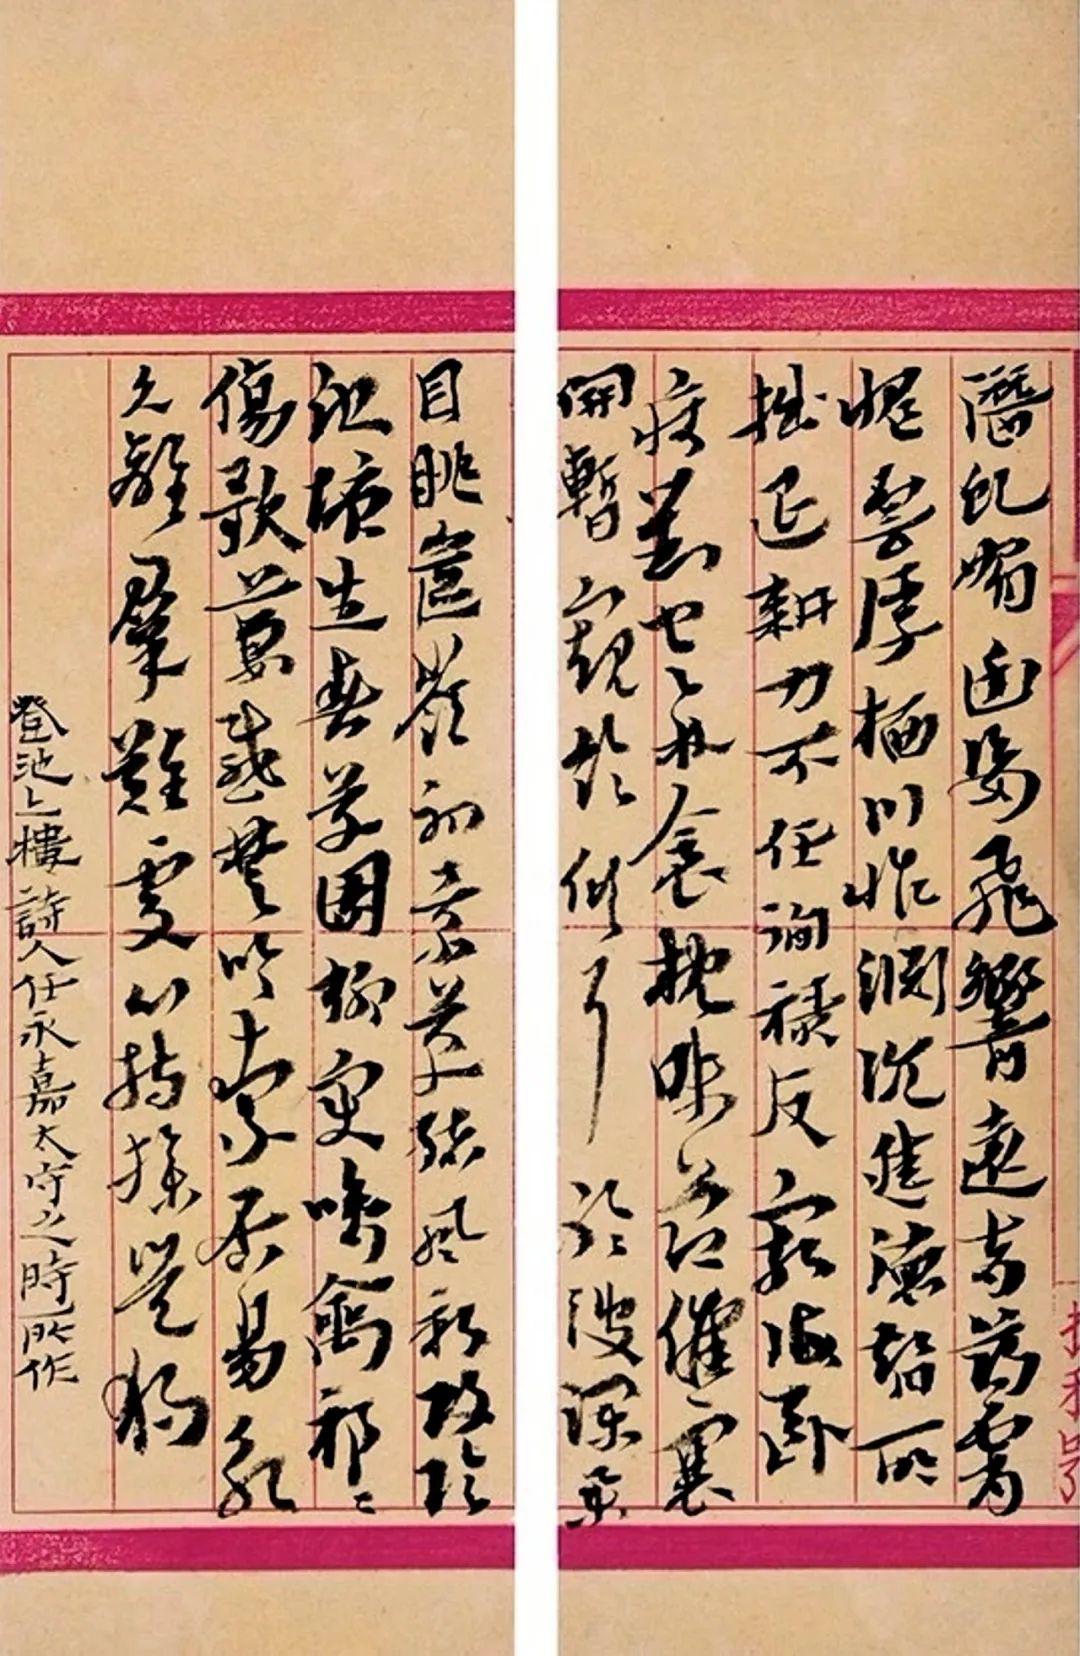 潛虬媚幽姿飛響遠音薄霄
愧雲浮栖川怍淵沉進德智所
拙退耕力不任徇祿反窮海卧
對空林衾枕昧節候褰
開暫窺臨傾耳聆波瀾舉
目眺嶇嶔初景革緒風新改陰
池塘生春草園柳變鳴禽祁〻
傷歌萋感楚吟索居易永
久離羣難處心持操豈獨
登池上樓詩人任永嘉太守之時所作